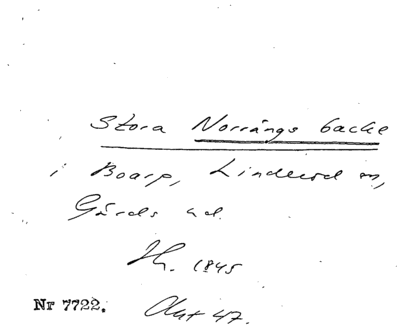 Stora Norrängs backe
i Boarp, Linderöd sn,
Gärds hd.
H. 1845
Nr 7722. Akt 47.